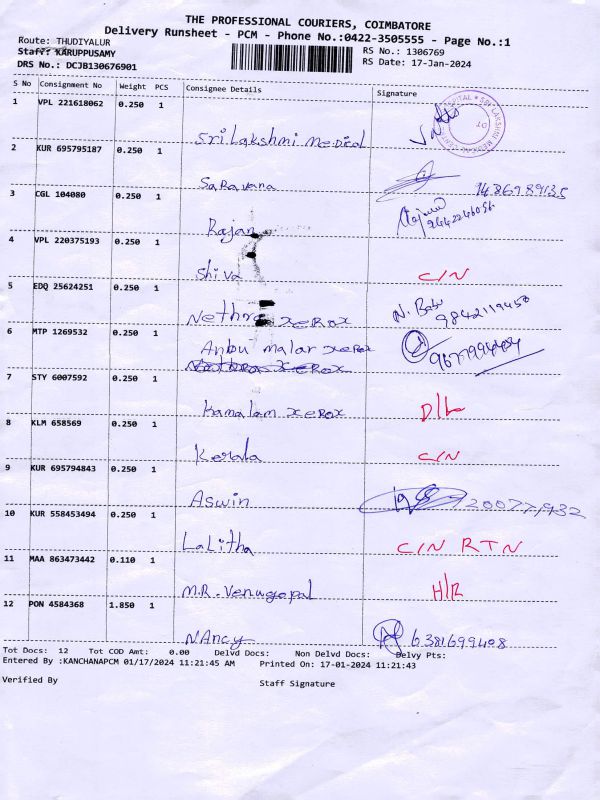 THE PROFESSIONAL COURIERS, COIMBATORE
Delivery Runsheet - PCM - Phone No.:0422-3505555 - Page No.:1
Route: THUDIYALUR
RS No.: 1306769
Staff: KARUPPUSAMY
RS Date: 17-Jan-2024
DRS No.: DCJB130676901
S No Consignment No Weight PCS Consignee Details Signature
1 VPL 221618062 0.250 1
Sri Lakshmi Medical
2 KUR 695795187 0.250 1
Saravana
3 CGL 104080 0.250 1
Rajan 9442246056
4 VPL 220375193 0.250 1
Shiva C/N
5 EDQ 25624251 0.250 1
Nethra xeRox N. Babu 9842119458
6 MTP 1269532 0.250 1
Anbu malar xeRox
7 STY 6007592 0.250 1
Kamalam xeRox D/L
8 KLM 658569 0.250 1
Kerala C/N
9 KUR 695794843 0.250 1
Aswin
10 KUR 558453494 0.250 1
LaLitha C/N RTN
11 MAA 863473442 0.110 1
M.R. Venugopal H/R
12 PON 4584368 1.850 1
NAncy 6381699408
Tot Docs: 12 Tot COD Amt: 0.00 Delvd Docs: Non Delvd Docs: Delvy Pts:
Entered By :KANCHANAPCM 01/17/2024 11:21:45 AM Printed On: 17-01-2024 11:21:43
Verified By Staff Signature